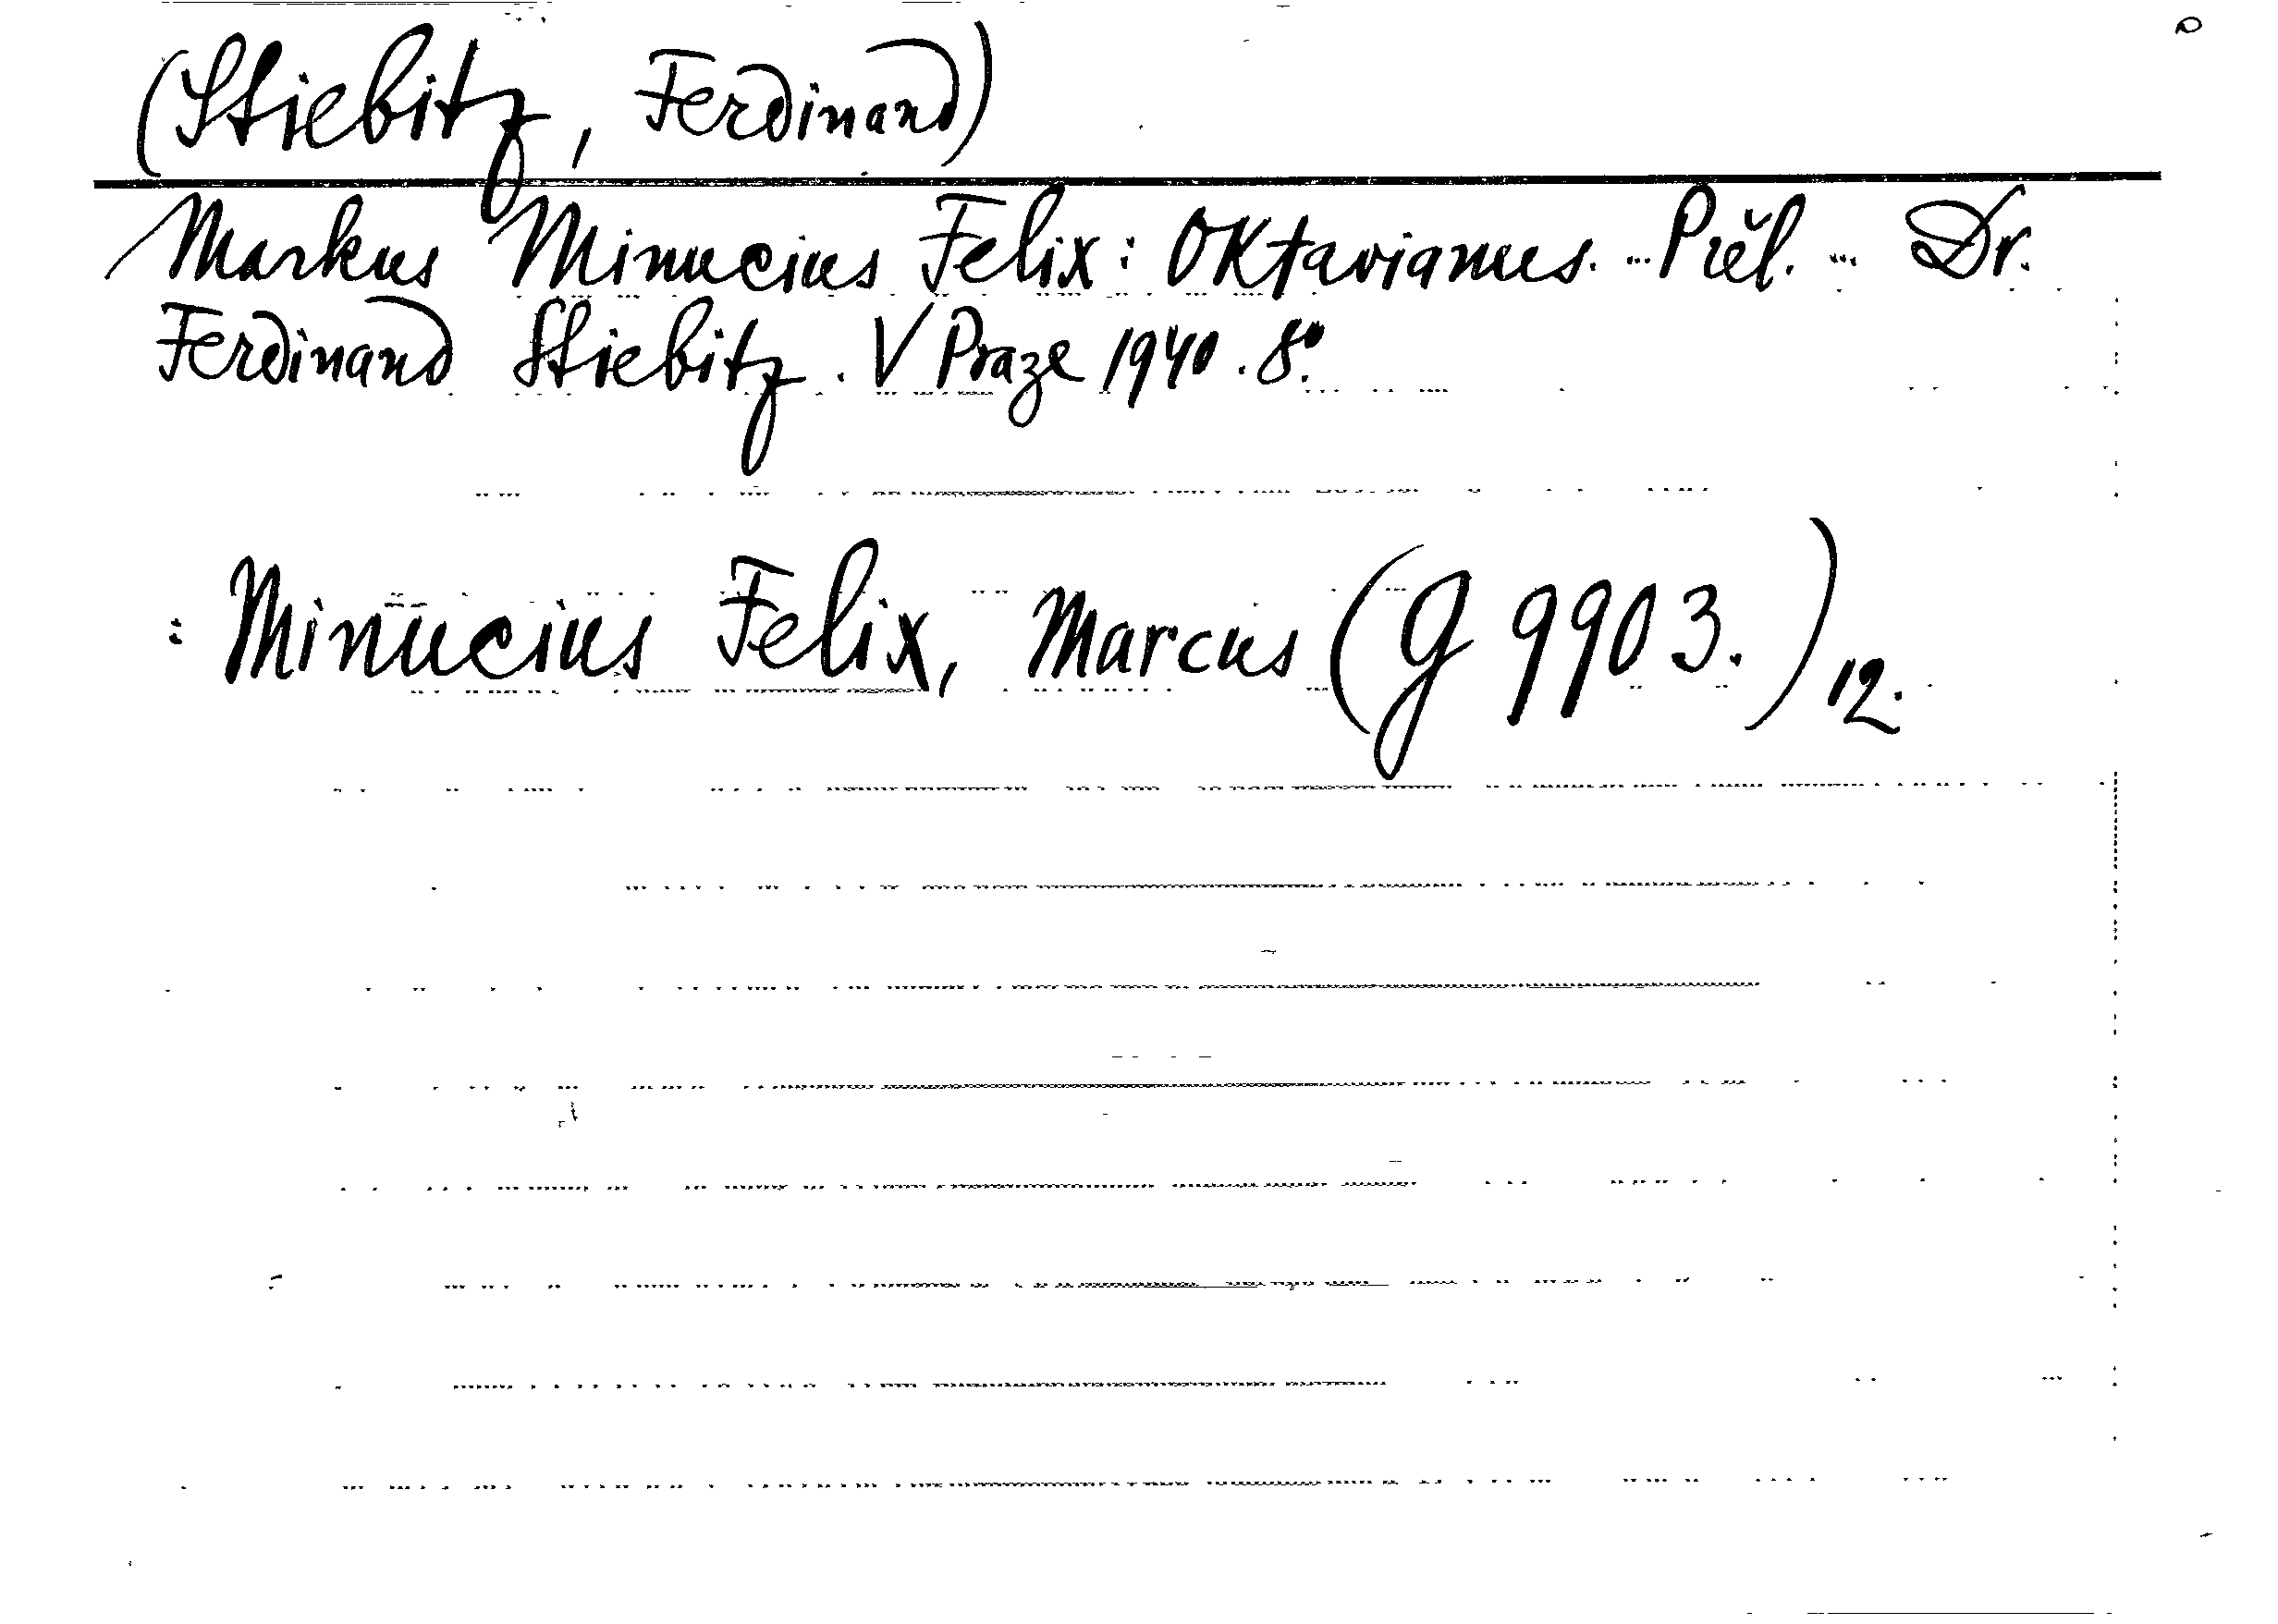 (Stiebitz, Ferdinand)
Markus Minucius Felix: Oktavianus. ... Přel. ... Dr.
Ferdinand Stiebitz. V Praze 1940. 8°.
: Minucius Felix, Marcus (G 9903.) 12.